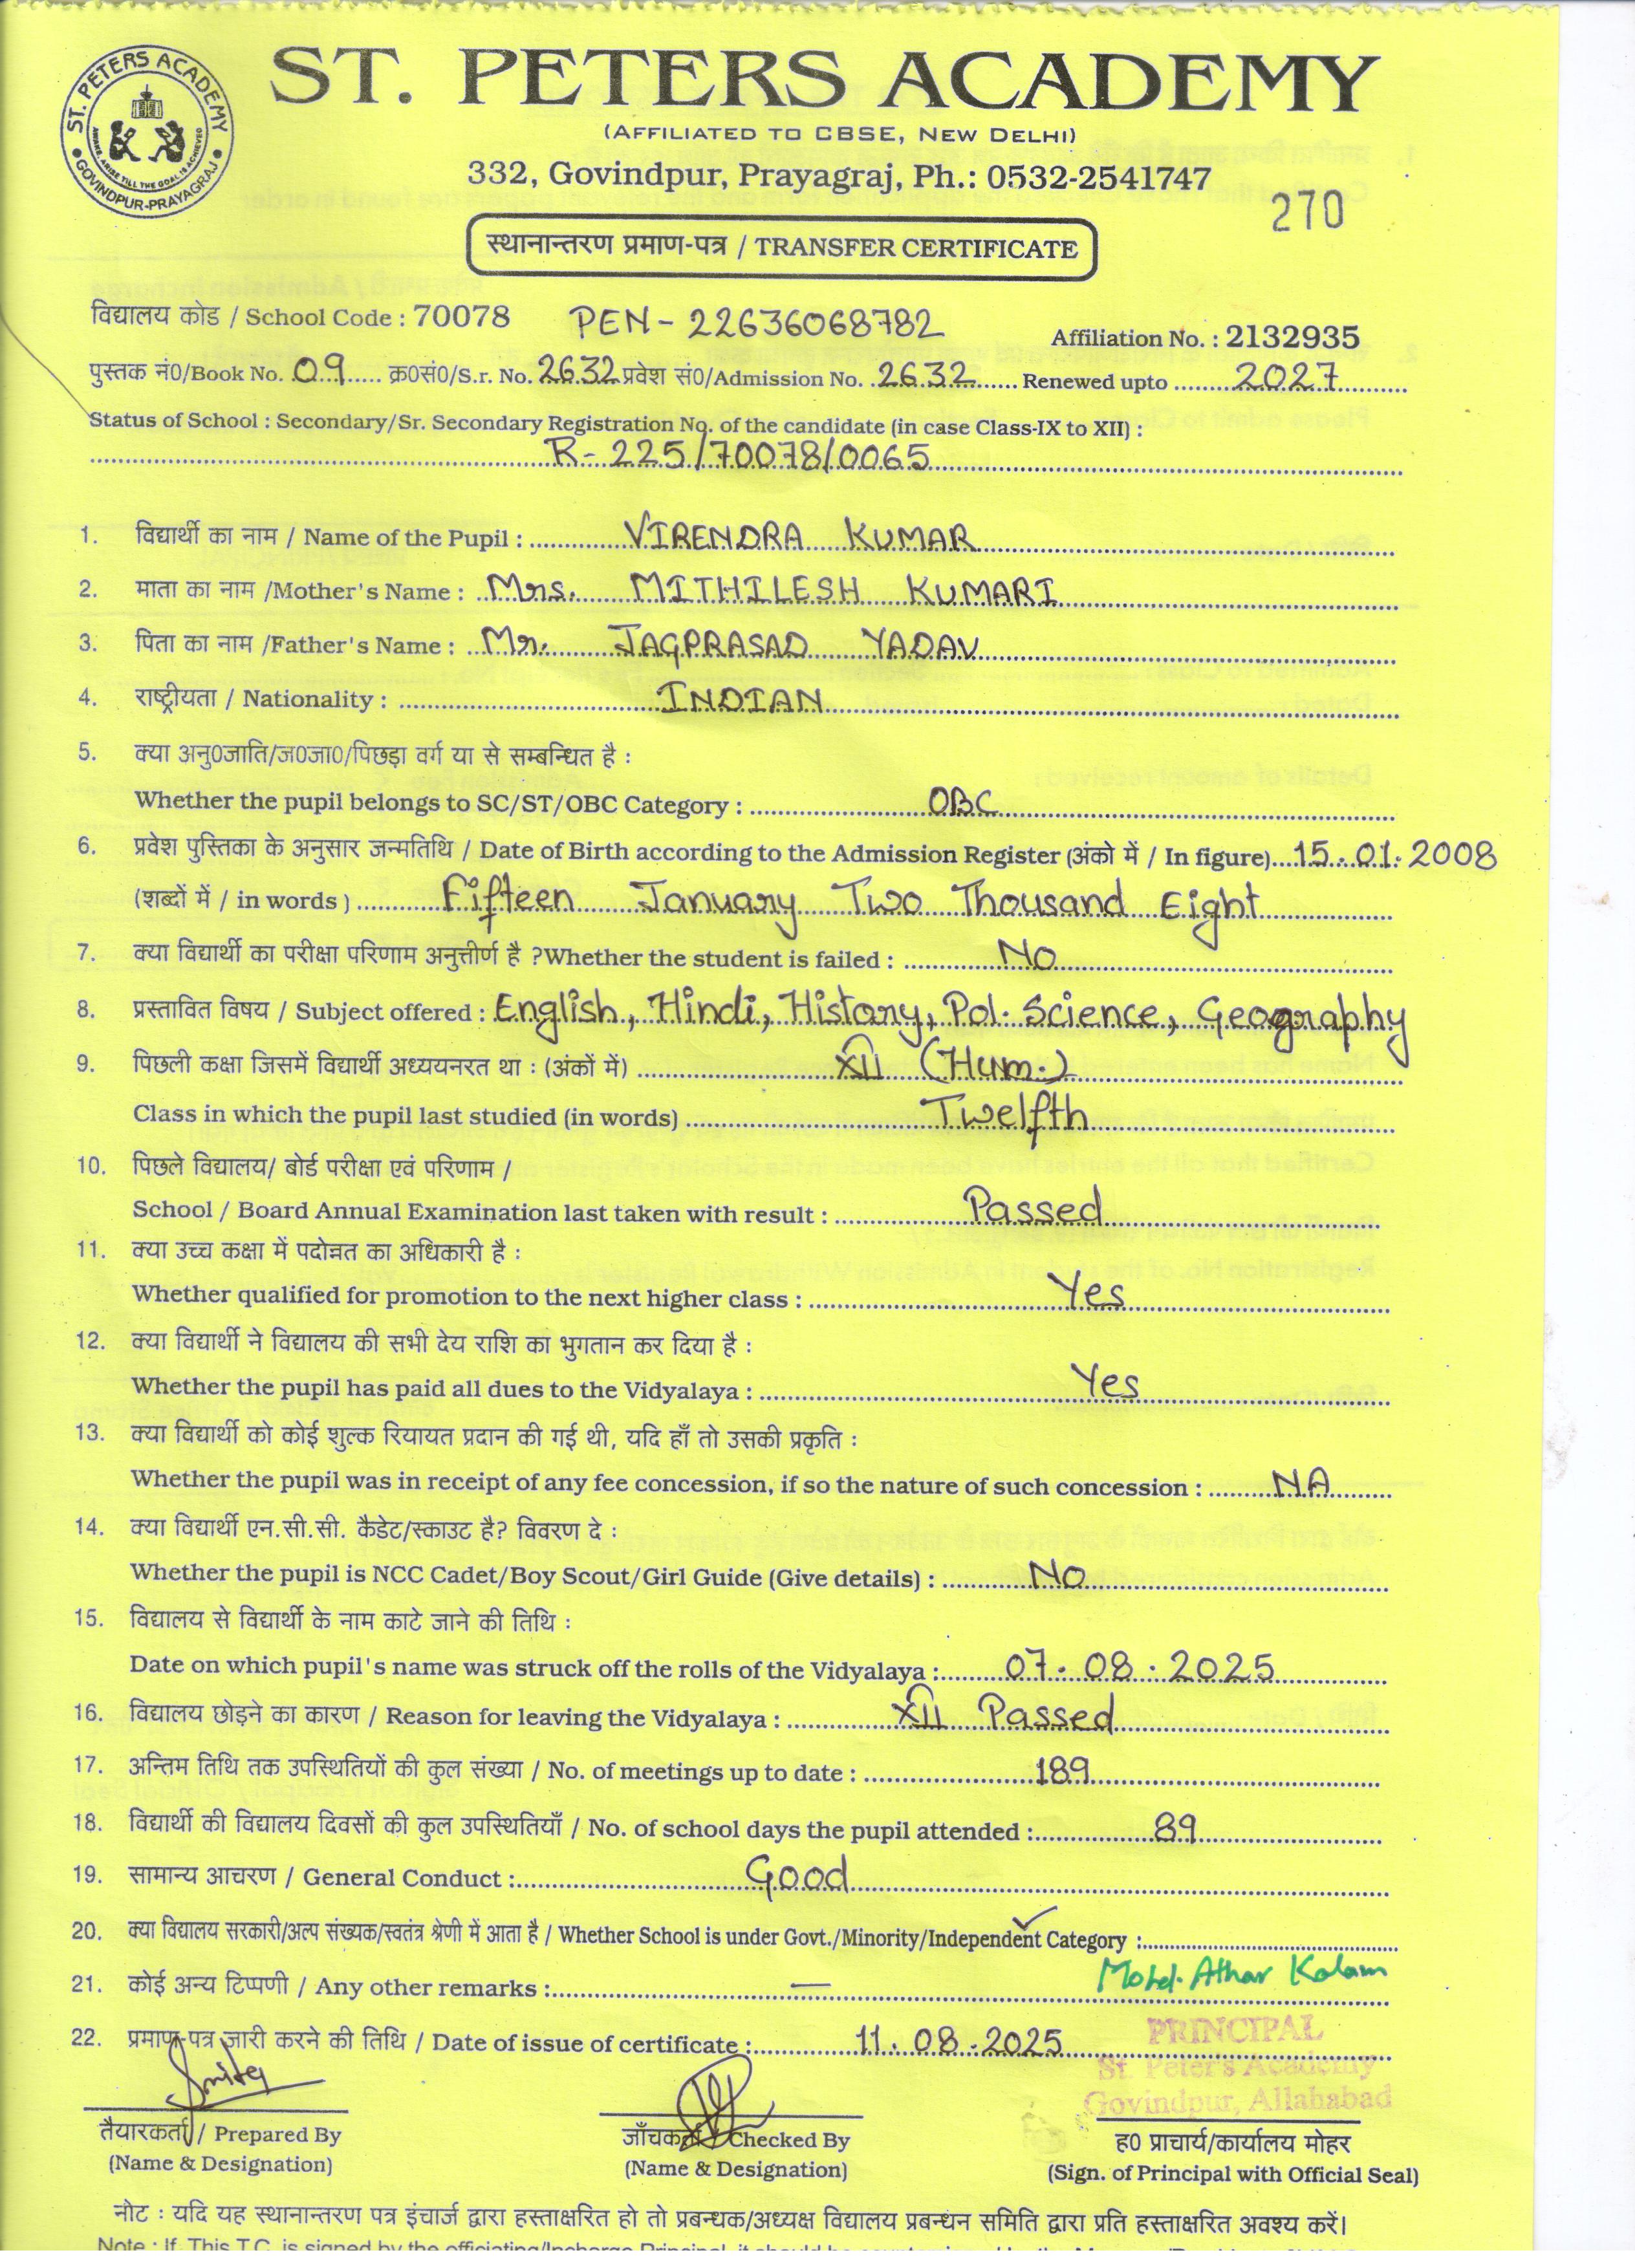 ST. PETERS ACADEMY
ST. PETERS ACADEMY
AWAKE, ARISE TILL THE GOAL IS ACHIEVED
GOVINDPUR-PRAYAGRAJ
(AFFILIATED TO CBSE, NEW DELHI)
332, Govindpur, Prayagraj, Ph.: 0532-2541747
270
स्थानान्तरण प्रमाण-पत्र / TRANSFER CERTIFICATE
विद्यालय कोड / School Code : 70078 PEN - 22636068782 Affiliation No. : 2132935
पुस्तक नं0/Book No. 09 क्र0सं0/S.r. No. 2632 प्रवेश सं0/Admission No. 2632 Renewed upto 2027
Status of School : Secondary/Sr. Secondary Registration No. of the candidate (in case Class-IX to XII) :
R- 225/70078/0065
1. विद्यार्थी का नाम / Name of the Pupil : VIRENDRA KUMAR
2. माता का नाम /Mother's Name : Mrs. MITHILESH KUMARI
3. पिता का नाम /Father's Name : Mr. JAGPRASAD YADAV
4. राष्ट्रीयता / Nationality : INDIAN
5. क्या अनु0जाति/ज0जा0/पिछड़ा वर्ग या से सम्बन्धित है :
Whether the pupil belongs to SC/ST/OBC Category : OBC
6. प्रवेश पुस्तिका के अनुसार जन्मतिथि / Date of Birth according to the Admission Register (अंको में / In figure) 15.01.2008
(शब्दों में / in words ) Fifteen January Two Thousand Eight
7. क्या विद्यार्थी का परीक्षा परिणाम अनुत्तीर्ण है ?Whether the student is failed : No
8. प्रस्तावित विषय / Subject offered : English, Hindi, History, Pol. Science, Geography
9. पिछली कक्षा जिसमें विद्यार्थी अध्ययनरत था : (अंकों में) XII (Hum.)
Class in which the pupil last studied (in words) Twelfth
10. पिछले विद्यालय/ बोर्ड परीक्षा एवं परिणाम /
School / Board Annual Examination last taken with result : Passed
11. क्या उच्च कक्षा में पदोन्नत का अधिकारी है :
Whether qualified for promotion to the next higher class : Yes
12. क्या विद्यार्थी ने विद्यालय की सभी देय राशि का भुगतान कर दिया है :
Whether the pupil has paid all dues to the Vidyalaya : Yes
13. क्या विद्यार्थी को कोई शुल्क रियायत प्रदान की गई थी, यदि हाँ तो उसकी प्रकृति :
Whether the pupil was in receipt of any fee concession, if so the nature of such concession : NA
14. क्या विद्यार्थी एन.सी.सी. कैडेट/स्काउट है? विवरण दे :
Whether the pupil is NCC Cadet/Boy Scout/Girl Guide (Give details) : No
15. विद्यालय से विद्यार्थी के नाम काटे जाने की तिथि :
Date on which pupil's name was struck off the rolls of the Vidyalaya : 07.08.2025
16. विद्यालय छोड़ने का कारण / Reason for leaving the Vidyalaya : XII Passed
17. अन्तिम तिथि तक उपस्थितियों की कुल संख्या / No. of meetings up to date : 189
18. विद्यार्थी की विद्यालय दिवसों की कुल उपस्थितियाँ / No. of school days the pupil attended : 89
19. सामान्य आचरण / General Conduct : Good
20. क्या विद्यालय सरकारी/अल्प संख्यक/स्वतंत्र श्रेणी में आता है / Whether School is under Govt./Minority/Independent Category :
21. कोई अन्य टिप्पणी / Any other remarks : — Mohd. Athar Kalam
22. प्रमाण-पत्र जारी करने की तिथि / Date of issue of certificate : 11.08.2025
PRINCIPAL
St. Peter's Academy
Govindpur, Allahabad
तैयारकर्ता / Prepared By जाँचकर्ता / Checked By ह0 प्राचार्य/कार्यालय मोहर
(Name & Designation) (Name & Designation) (Sign. of Principal with Official Seal)
नोट : यदि यह स्थानान्तरण पत्र इंचार्ज द्वारा हस्ताक्षरित हो तो प्रबन्धक/अध्यक्ष विद्यालय प्रबन्धन समिति द्वारा प्रति हस्ताक्षरित अवश्य करें।
Note : If, This T.C. is signed by the officiating/Incharge Principal, it should be